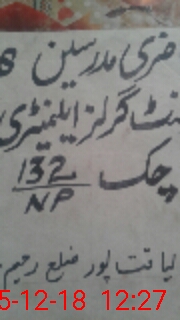 ضری مدرسین
نٹ گرلز ایلیمنٹری
چک 132/NP
لیاقت پور ضلع رحیم
5-12-18 12:27